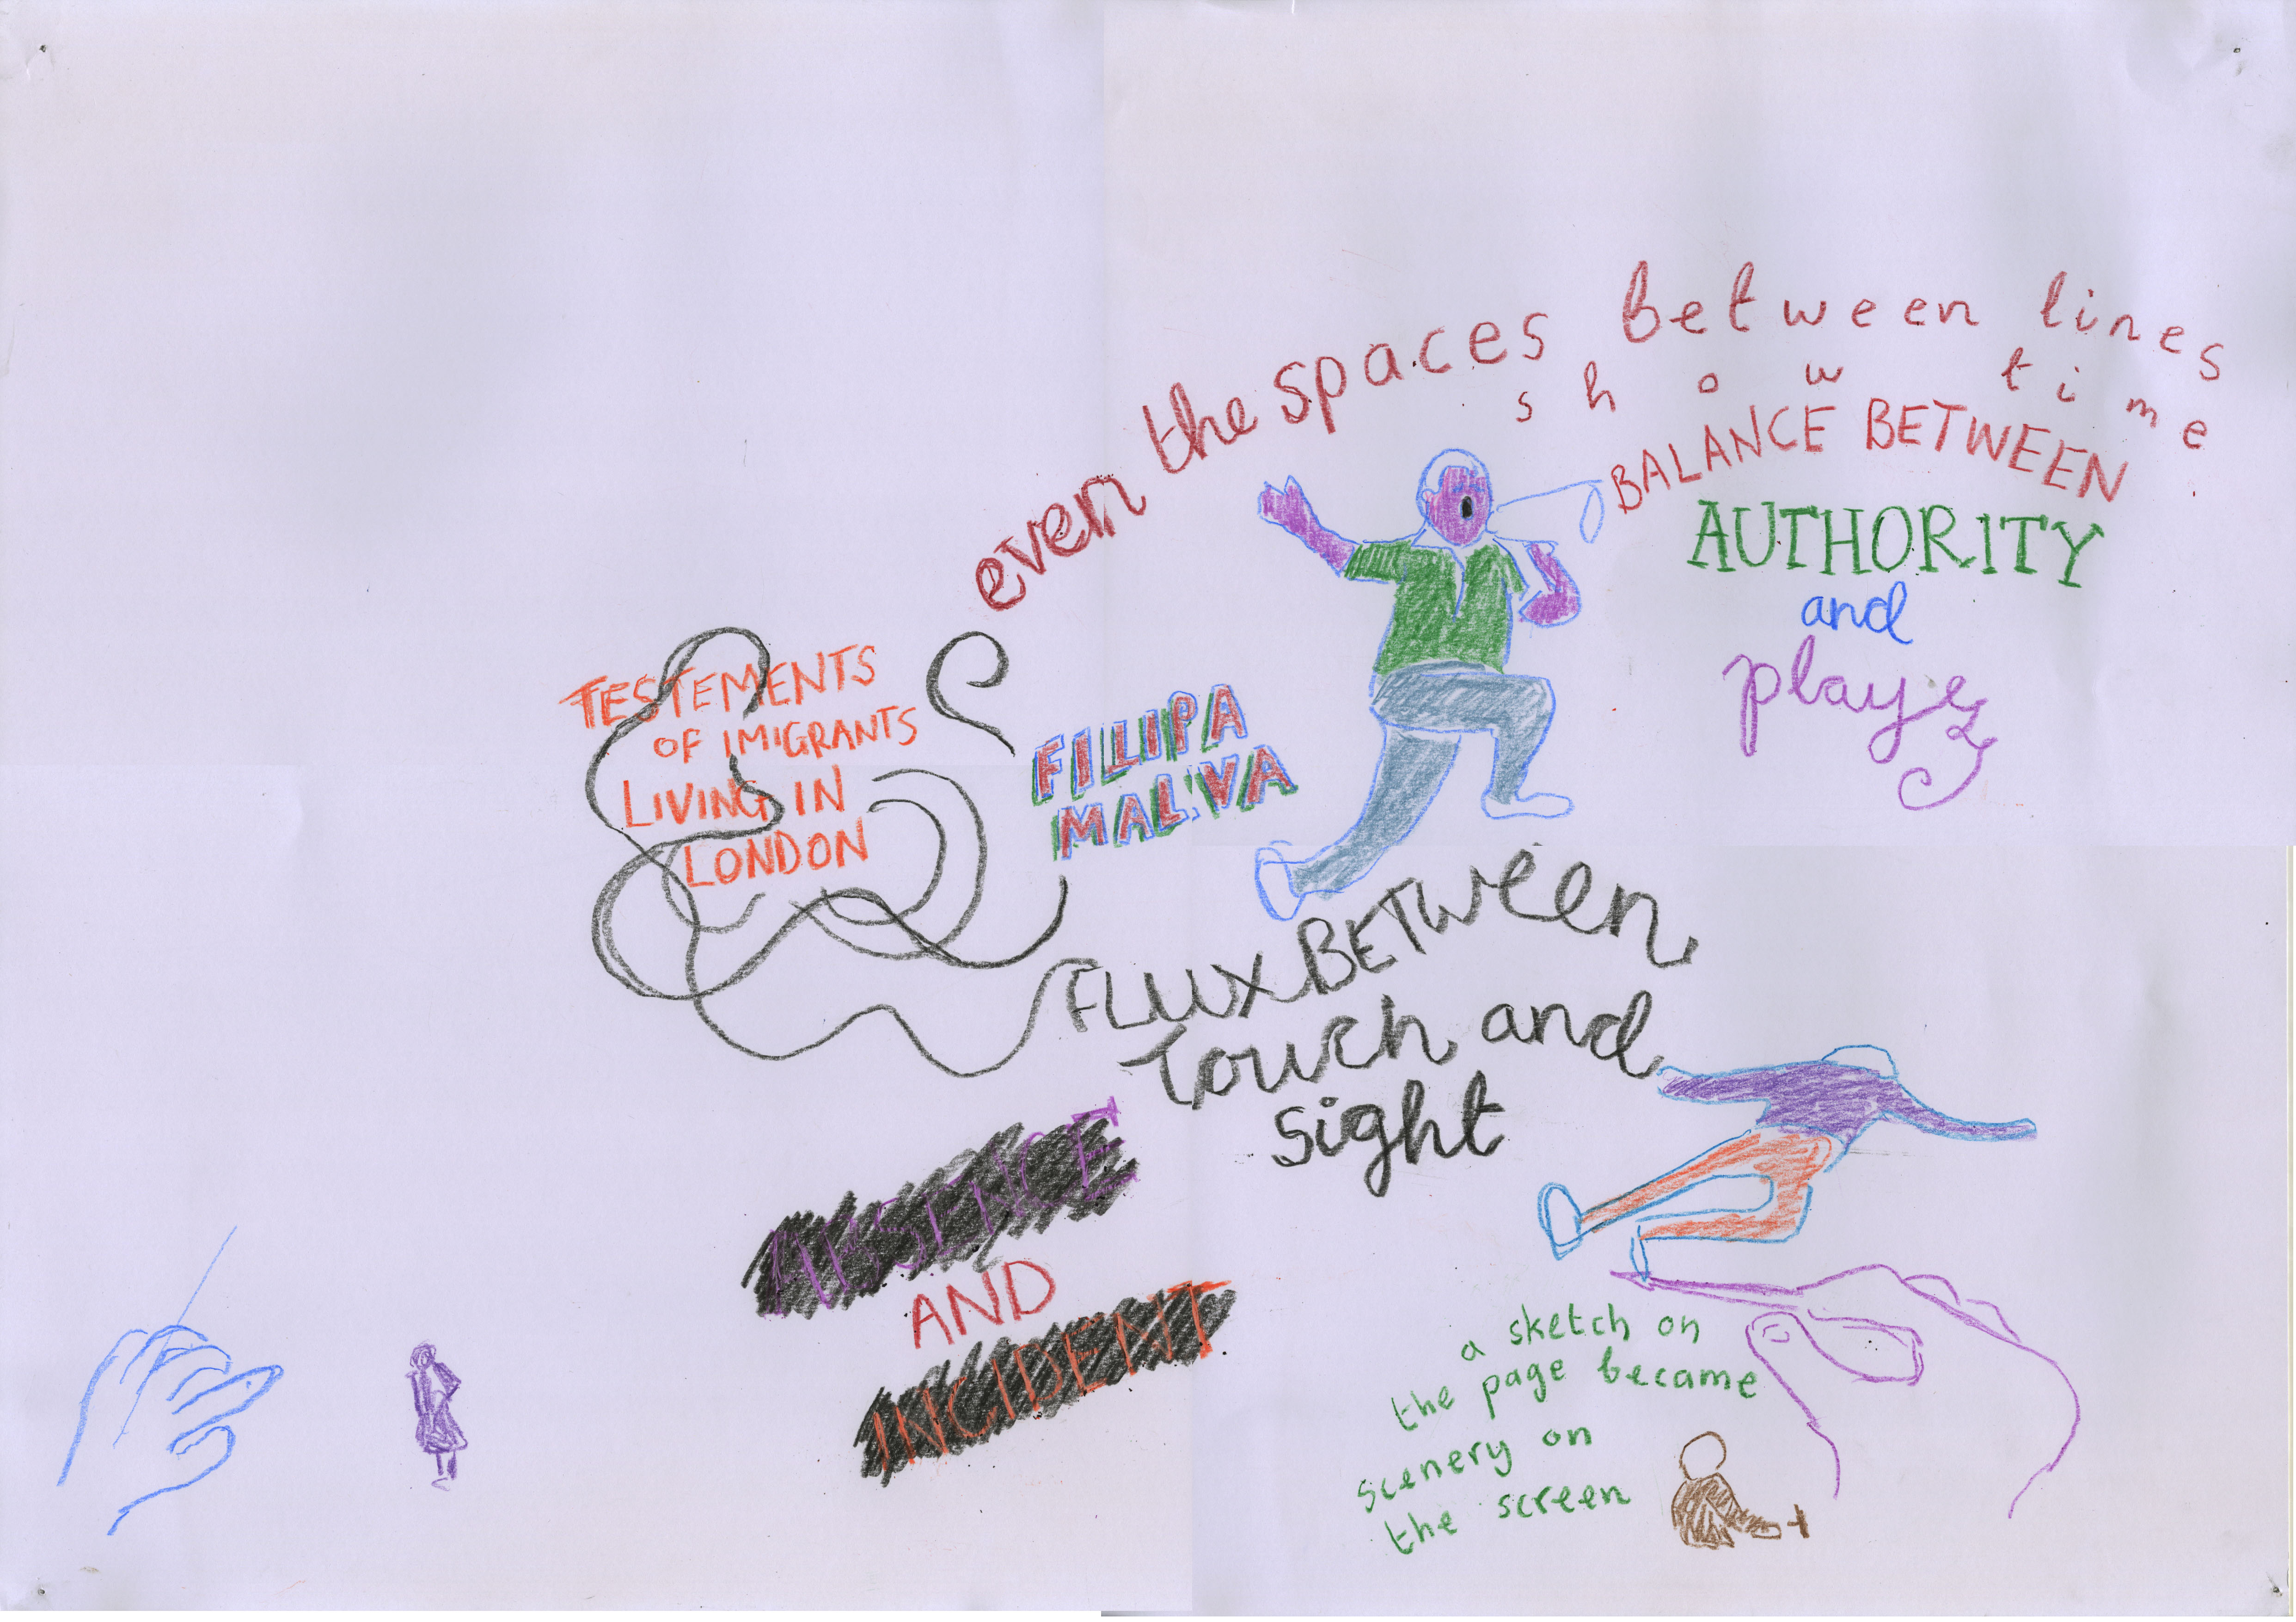 even the spaces between lines
show time
BALANCE BETWEEN
AUTHORITY
and
play
TESTEMENTS
OF IMIGRANTS
LIVING IN
LONDON
FILIPA
MALVA
FLUX BETWEEN
touch and
sight
ABSENCE
AND
INCIDENT
a sketch on
the page became
scenery on
the screen